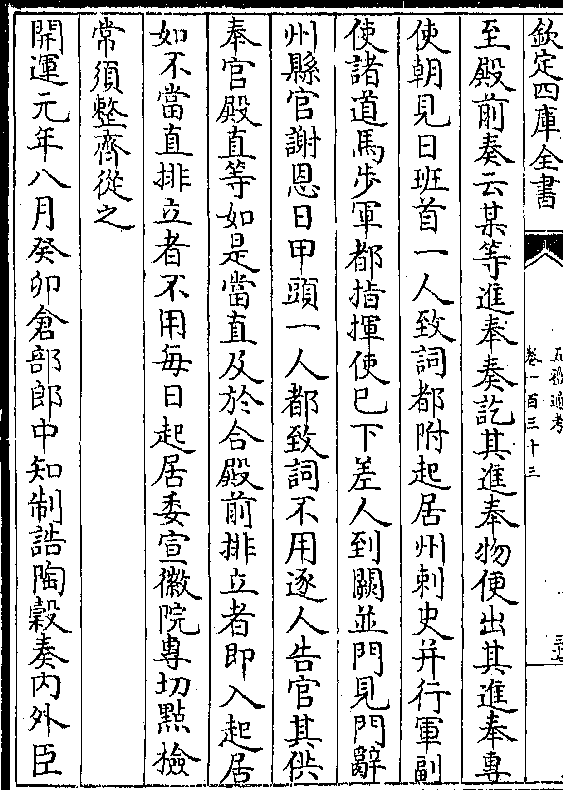 欽定四庫全書
五禮通考
卷一百三十三
至殿前奏云某等進奉奏訖其進奉物便出其進奉專
使朝見日班首一人致詞都附起居州刺史并行軍副
使諸道馬步軍都指揮使已下差人到闕並門見門辭
州縣官謝恩日甲頭一人都致詞不用逐人告官其供
奉官殿直等如是當直及於合殿前排立者即入起居
如不當直排立者不用每日起居委宣徽院專切點檢
常須整齊從之
開運元年八月癸卯倉部郎中知制誥陶穀奏内外臣